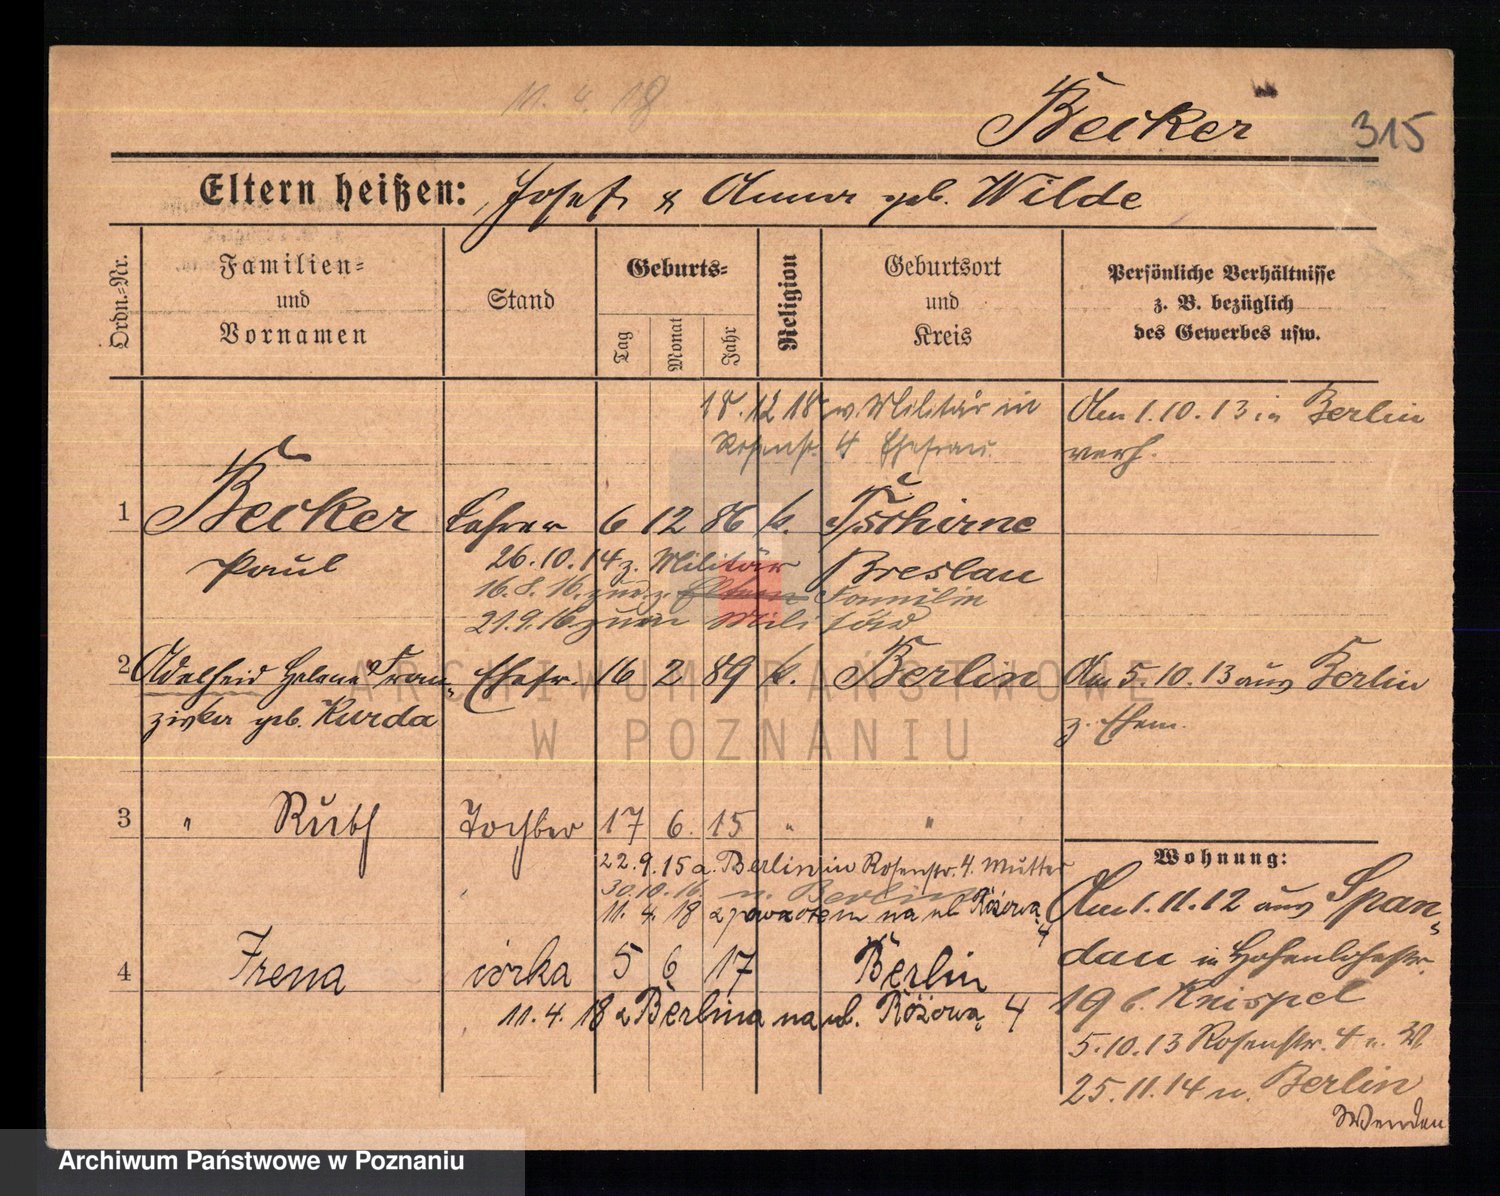 11. 4. 18
Becker 315
Eltern heißen: Josef & Anna geb. Wilde
Ordn.=Nr.
Familien=
und
Vornamen
Stand
Geburts=
Tag
Monat
Jahr
Religion
Geburtsort
und
Kreis
Persönliche Verhältnisse
z. B. bezüglich
des Gewerbes usw.
18. 12 18 v. Militär in
Rosenstr. 4 Ehefrau.
Am 1. 10. 13 in Berlin
verh.
1 Becker Lehrer 6 12 86 k. Tschirne
Paul
26. 10. 14 z. Militär Breslau
16. 8. 16. zur. z. Eltern Familie
21. 9. 16 zum Militär
2 Adelheid Helene Fran„ Ehefr. 16 2 89 k. Berlin Am 5. 10. 13 aus Berlin
ziska geb. Kurda
z. Ehem.
3 " Ruth Tochter 17 6. 15 " "
22. 9. 15 a. Berlin in Rosenstr. 4. Mutter
30. 10. 16. n. Berlin
11. 4. 18 z powrotem na ul Różową 4
4 Irena córka 5 6 17 Berlin
11. 4. 18 z Berlina na ul. Różową 4
Wohnung:
Am 1. 11. 12 aus Span„
dau in Hohenlohestr.
19 b. Knispel
5. 10. 13 Rosenstr. 4 n. W
25. 11. 14 n. Berlin
Wenden
ARCHIWUM PAŃSTWOWE
W POZNANIU
Archiwum Państwowe w Poznaniu